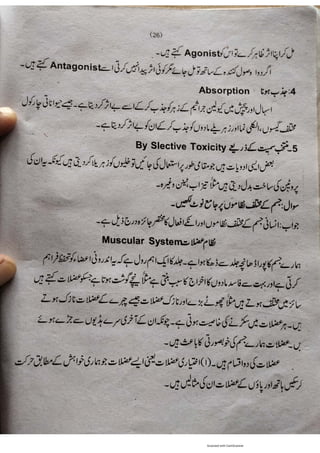 (26)
مل کر اپنا اثر ظاہر کرے تو اس کو Agonist کہتے ہیں۔
اگر دوا وصول کنندہ کے ساتھ تو مل جائے مگر کوئی اثر پیدا نہیں کرتی اسے Antagonist کہتے ہیں۔
4: جذب ہونا Absorption
اسہال اور پیچش میں کیولین جراثیم کے زہر کو جذب کر کے اسے بے اثر کر دیتا ہے۔ جیسے حیواناتی چارکول
مختلف گیسوں، الکلی نما اور زہریلے مادوں کو جذب کر کے ان کو بے اثر کر دیتا ہے۔
5۔ منتخب سمیت کے ذریعے By Slective Toxicity
بعض ایسی ادویات ہیں جو مقامی طور پر استعمال کی جائیں تو خلیوں کو زہریلا کر دیتی ہیں کیونکہ یہ ان کی
پروٹین کی ساخت بدل دیتی ہیں مثلاً تیزاب وغیرہ۔
سوال: جسم کے مختلف نظاموں پر جامع نوٹ لکھیں۔
جواب: انسانی جسم کے مختلف نظاموں اور انکے افعال کا مختصر جائزہ درج ذیل ہے۔
نظام عضلات Muscular System
ہمارے جسم کا پورا ڈھانچہ جلد سے ڈھکا ہوا ہے۔ جلد کا ایک اہم رول ہے کہ یہ اندرونی اعضاء کو تحفظ فراہم
کرتی ہے اور بہت سے فاسد مادوں کا اخراج کا سبب بنتی ہے مثلاً نیچے گوشت ہوتا ہے جسکو عضلات کہتے ہیں
سائز میں مختلف ہوتے ہیں مثلاً چھوٹے بڑے اور نازک عضلات جیسے چہرے کے عضلات نازک ہوتے
ہیں۔ ہر عضلات میں سکڑنے کی خاصیت ہوتی ہے۔ چونکہ ان کے آخری سرے ہڈیوں سے جڑے ہوئے
ہیں۔ عضلات ہمارے جسم کی خوبصورتی کا باعث ہیں۔
عضلات کی دو اقسام ہیں۔ (۱) اختیاری عضلات یعنی ایسے عضلات جو ہماری خواہش کے مطابق حرکت
کر سکیں ہاتھ اور پاؤں کے عضلات ان کی مثالیں ہیں۔
Scanned with CamScanner